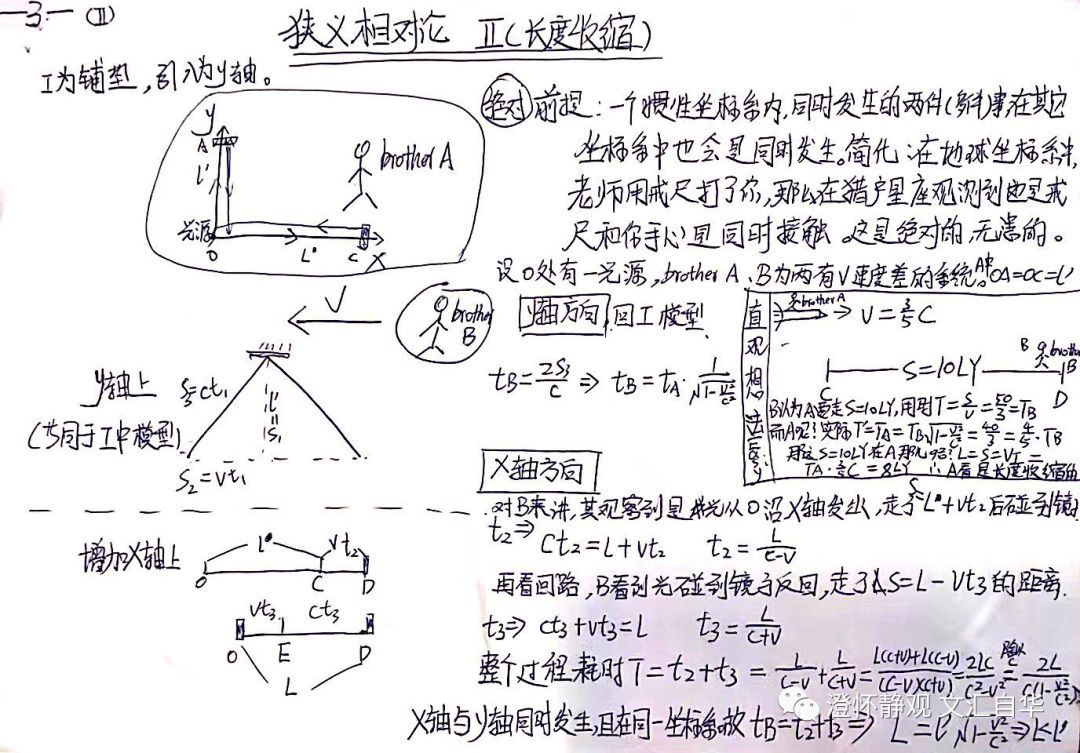 -3- (Ⅱ)
狭义相对论 Ⅱ(长度收缩)
Ⅰ为铺垫,引入为y轴。
y
A
l'
光源
O
L'
C
X
brother A
V
brother B
绝对 前提:一个惯性坐标系内,同时发生的两件事在其它
坐标系中也会是同时发生。简化:在地球坐标系中,
老师用戒尺打了你,那么在猎户星座观测到也是戒
尺和你手心是同时接触。这是绝对的,无悬的。
设O处有一光源,brother A、B为两有V速度差的系统。A中OA=OC=L'
y轴方向,回Ⅰ模型
t_B=2S_3/C ⇒ t_B=t_A·1/√1-V²/C²
直观想法
brother A → V=3/5C
B brother B
C S=10LY D
B认为A要走S=10LY,用时T=S/V=50/3=T_B
而A呢?实际T'=T_A=T_B√1-V²/C²=40/3=4/5·T_B
那这S=10LY在A那儿呢?L=S=VT=
T_A·3/5C=8LY ∴A看是长度收缩的
y轴上
(等同于Ⅰ中模型)
S_3=ct_1
l'
S_1
S_2=vt_1
X轴方向
对B来讲,其观察到是光从O沿X轴发出,走了L+vt_2后碰到镜
t_2⇒ Ct_2=L+vt_2 t_2=L/C-V
再看回路,B看到光碰到镜子反回,走了S=L-Vt_3的距离.
t_3⇒ Ct_3+Vt_3=L t_3=L/C+V
整个过程耗时T=t_2+t_3=L/C-V+L/C+V=L(C+V)+L(C-V)/(C-V)(C+V)=2LC/C²-V²=2L/C(1-V²/C²)
X轴与y轴同时发生,且在同一坐标系故t_B=t_2+t_3⇒ L=l'√1-V²/C²⇒L<l'
增加X轴上
L
Vt_2
O C D
Vt_3 Ct_3
O E D
L
澄怀静观 文汇自华